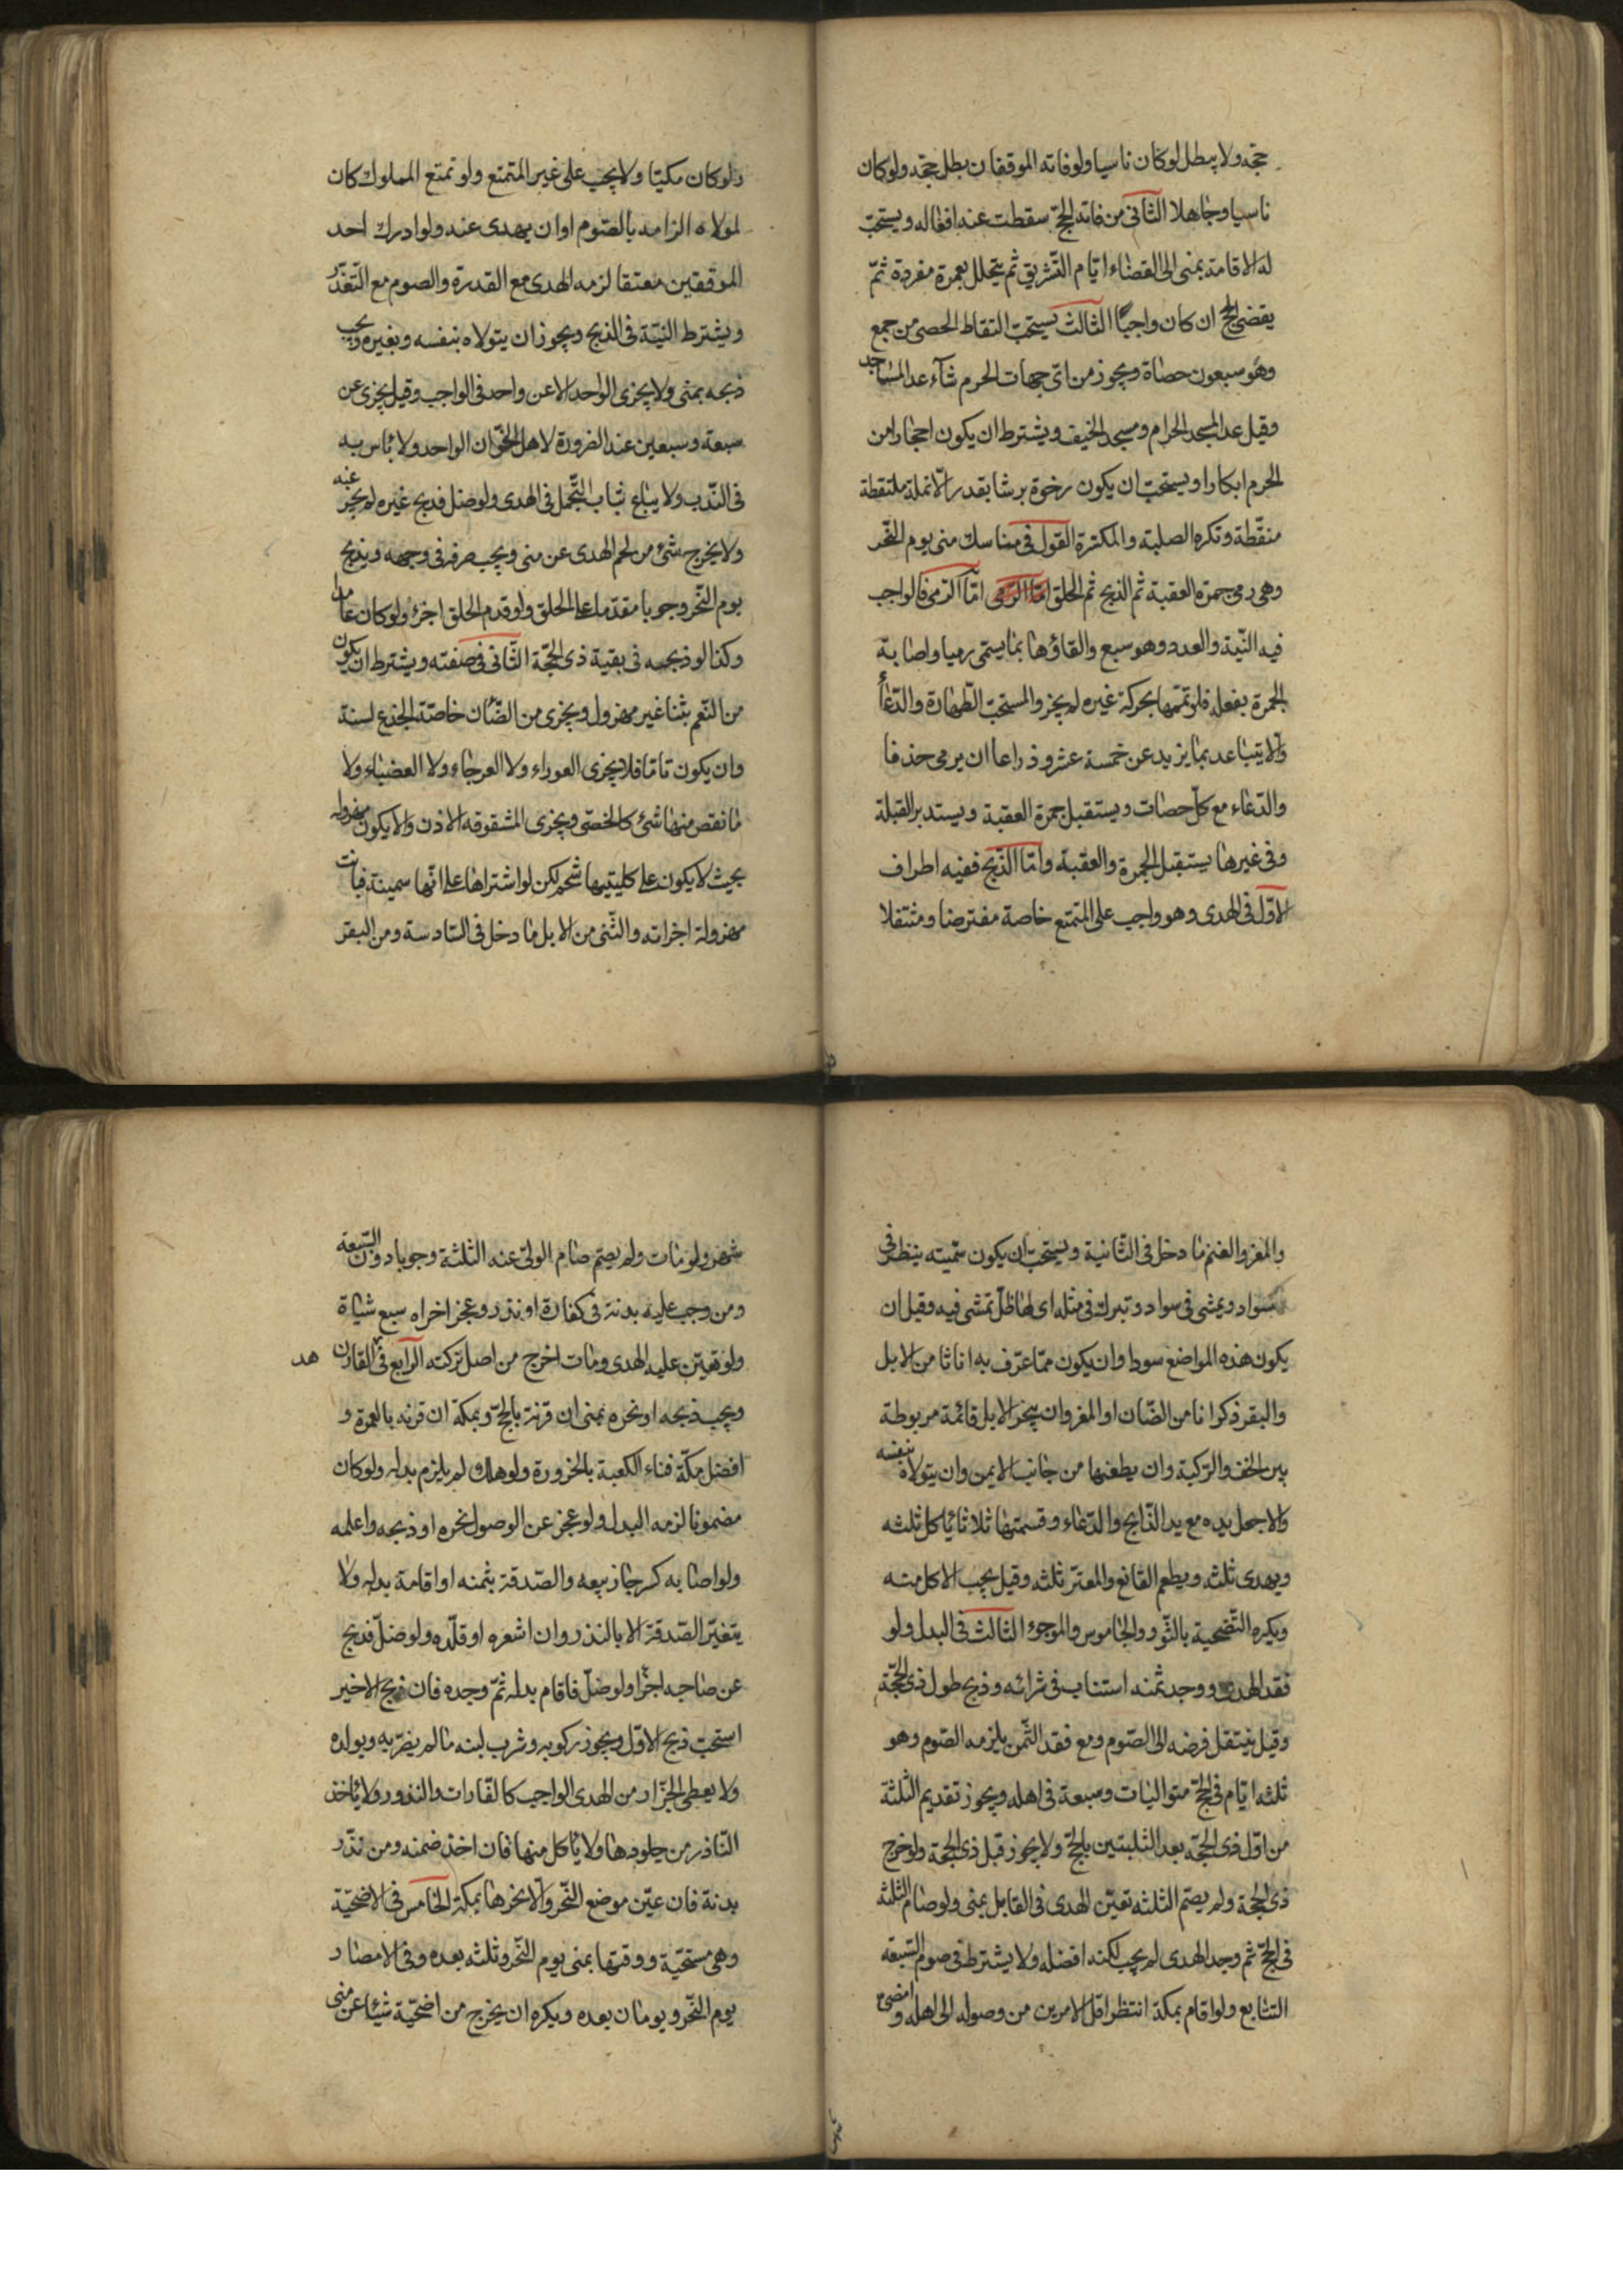 حجه ولا يبطل لوكان ناسيا ولو فاته الموقفان بطل حجه ولو كان
ناسيا وجاهلا الثانى من فاته الحج سقطت عنه افعاله ويستحب
له الاقامة بمنى الى انقضاء ايام التشريق ثم يتحلل بعمرة مفردة ثم
يقضى الحج ان كان واجبا الثالث يستحب التقاط الحصى من جمع
وهو سبعون حصاة ويجوز من اى جهات الحرم شاء عدا المساجد
وقيل عدا المسجد الحرام ومسجد الخيف ويشترط ان يكون احجارا من
الحرم ابكارا ويستحب ان يكون رخوة برشا بقدر الانملة ملتقطة
منقطة وتكره الصلبة والمكسرة القول فى مناسك منى يوم النحر
وهى رمى جمرة العقبة ثم الذبح ثم الحلق اما الرمى اما الرمى فالواجب
فيه النية والعدد وهو سبع والقاؤها بما يسمى رميا واصابة
الجمرة بفعله فلو تممها بحركة غيره لم يجز والمستحب الطهارة والدعاء
والا يتباعد بما يزيد عن خمسة عشر ذراعا ان يرمى حذفا
والدعاء مع كل حصات ويستقبل جمرة العقبة ويستدبر القبلة
وفى غيرها يستقبل الجمرة والعقبة واما الذبح ففيه اطراف
الاول فى الهدى وهو واجب على المتمتع خاصة مفترضا ومتنفلا
ولو كان مكيا ولا يجب على غير المتمتع ولو تمتع المملوك كان
لمولاه الزامه بالصوم او ان يهدى عنه ولو ادرك احد
الموقفين معتقا لزمه الهدى مع القدرة والصوم مع التعذر
ويشترط النية فى الذبح ويجوز ان يتولاه بنفسه وبغيره ويجب
ذبحه بمنى ولا يجزى الواحد الا عن واحد فى الواجب وقيل يجزى عن
سبعة وسبعين عند الضرورة لاهل الخوان الواحد ولا باس به
فى الندب ولا يباع ثياب التجمل فى الهدى ولو ضل فذبح غيره لم يجز عنه
ولا يخرج شئ من لحم الهدى عن منى ويجب صرفه فى وجهه ويذبح
يوم النحر وجوبا مقدما على الحلق ولو قدم الحلق اجزء ولو كان عامدا
وكذا لو ذبحه فى بقية ذى الحجة الثانى فى صفته ويشترط ان يكون
من النعم ثنيا غير مهزول ويجزى من الضان خاصة الجذع لسنة
وان يكون تاما فلا يجزى العوراء ولا العرجاء ولا العضباء ولا
ما نقص منها شئ كالخصى ويجزى المشقوقه الاذن والا يكون مهزوله
بحيث لا يكون على كليتيها شحم لكن لو اشتراها على انها سمينة فبانت
مهزولة اجزاته والثنى من الابل ما دخل فى السادسة ومن البقر
والمعز والغنم ما دخل فى الثانية ويستحب ان يكون سمينه ينظر فى
سواد ويمشى فى سواد وتبرك فى مثله اى لها ظل تمشى فيه وقيل ان
يكون هذه المواضع سودا وان يكون مما عرف به اناثا من الابل
والبقر ذكرانا من الضان او المعز وان ينحر الابل قائمة مربوطة
بين الخف والركبة وان يطعنها من جانب الايمن وان يتولاه بنفسه
والا جعل يده مع يد الذابح والدعاء وقسمتها ثلاثا ياكل ثلثه
ويهدى ثلثه ويطعم القانع والمعتر ثلثه وقيل يجب الاكل منه
ويكره التضحية بالثور والجاموس والموجوء الثالث فى البدل ولو
فقد الهدى ووجد ثمنه استناب فى شرائه وذبح طول ذى الحجة
وقيل ينتقل فرضه الى الصوم ومع فقد الثمن يلزمه الصوم وهو
ثلثه ايام فى الحج متواليات وسبعة فى اهله ويجوز تقديم الثلثة
من اول ذى الحجة بعد التلبيتين بالحج ولا يجوز قبل ذى الحجة ولو خرج
ذى الحجة ولم يصم الثلثه تعين الهدى فى القابل بمنى ولو صام الثلثه
فى الحج ثم وجد الهدى لم يجب لكنه افضله ولا يشترط فى صوم السبعه
التتابع ولو اقام بمكة انتظر اقل الامرين من وصوله الى اهله ومضى
شهر ولو مات ولم يصم صام الولى عنه الثلثة وجوبا دون السبعة
ومن وجب عليه بدنة فى كفارة او نذر وعجز اجزاه سبع شياة
ولو تعين عليه الهدى ومات اخرج من اصل تركته الرابع فى القارن
هد
ويجب ذبحه او نحره بمنى ان قرنه بالحج وبمكة ان قرنه بالعمرة و
افضل مكة فناء الكعبة بالحزورة ولو هلك لم يلزم بدله ولو كان
مضمونا لزمه البدل ولو عجز عن الوصول نحره او ذبحه واعلمه
ولو اصابه كسر جاز بيعه والصدقة بثمنه او اقامة بدله ولا
يتعين الصدقة الا بالنذر وان اشعره او قلده ولو ضل فذبح
عن صاحبه اجزا ولو ضل فاقام بدله ثم وجده فان ذبح الاخير
استحب ذبح الاول ويجوز ركوبه وشرب لبنه ما لم يضر به وبولده
ولا يعطى الجزار من الهدى الواجب كالكفارات والنذور ولا ياخذ
الناذر من جلودها ولا ياكل منها فان اخذ ضمنه ومن نذر
بدنة فان عين موضع النحر والا نحرها بمكة الخامس فى الاضحية
وهى مستحبة ووقتها بمنى يوم النحر وثلثه بعده وفى الامصار
يوم النحر ويومان بعده ويكره ان يخرج من اضحية شيئا عن منى